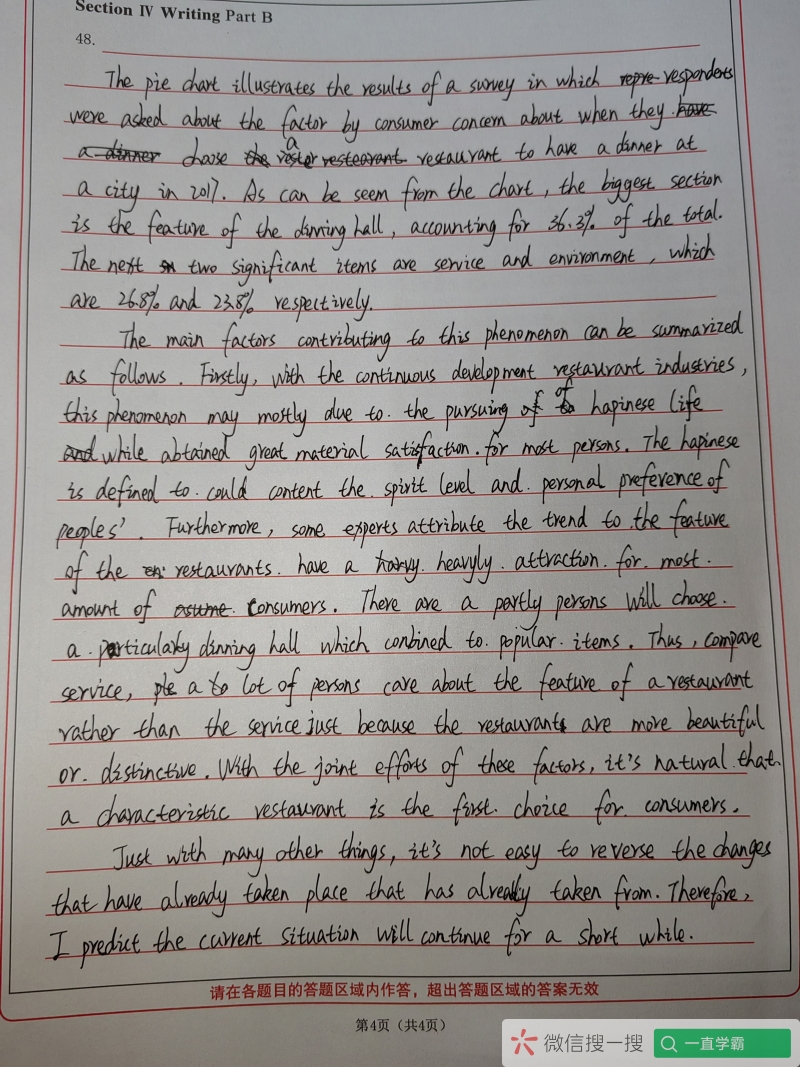 Section IV Writing Part B
48.
The pie chart illustrates the results of a survey in which repre- respondents
were asked about the factor by consumer concern about when they have
a dinner choose the restor restearant a restaurant to have a dinner at
a city in 2017. As can be seem from the chart, the biggest section
is the feature of the dinning hall, accounting for 36.3% of the total.
The next two significant items are service and environment, which
are 26.8% and 23.8% respectively.
The main factors contributing to this phenomenon can be summarized
as follows. Firstly, with the continuous development restaurant industries,
this phenomenon may mostly due to the pursuing of of hapinese life
and while abtained great material satisfaction for most persons. The hapinese
is defined to could content the spirit level and personal preference of
peoples'. Furthermore, some experts attribute the trend to the feature
of the restaurants have a heavyly attraction for most
amount of consumers. There are a partly persons will choose
a particularly dinning hall which conbined to popular items. Thus, compare
service, ple a to lot of persons care about the feature of a restaurant
rather than the service just because the restaurants are more beautiful
or distinctive. With the joint efforts of these factors, it's natural that
a characteristic restaurant is the first choice for consumers.
Just with many other things, it's not easy to reverse the changes
that have already taken place that has already taken from. Therefore,
I predict the current situation will continue for a short while.
请在各题目的答题区域内作答，超出答题区域的答案无效
第4页（共4页）
微信搜一搜 一直学霸